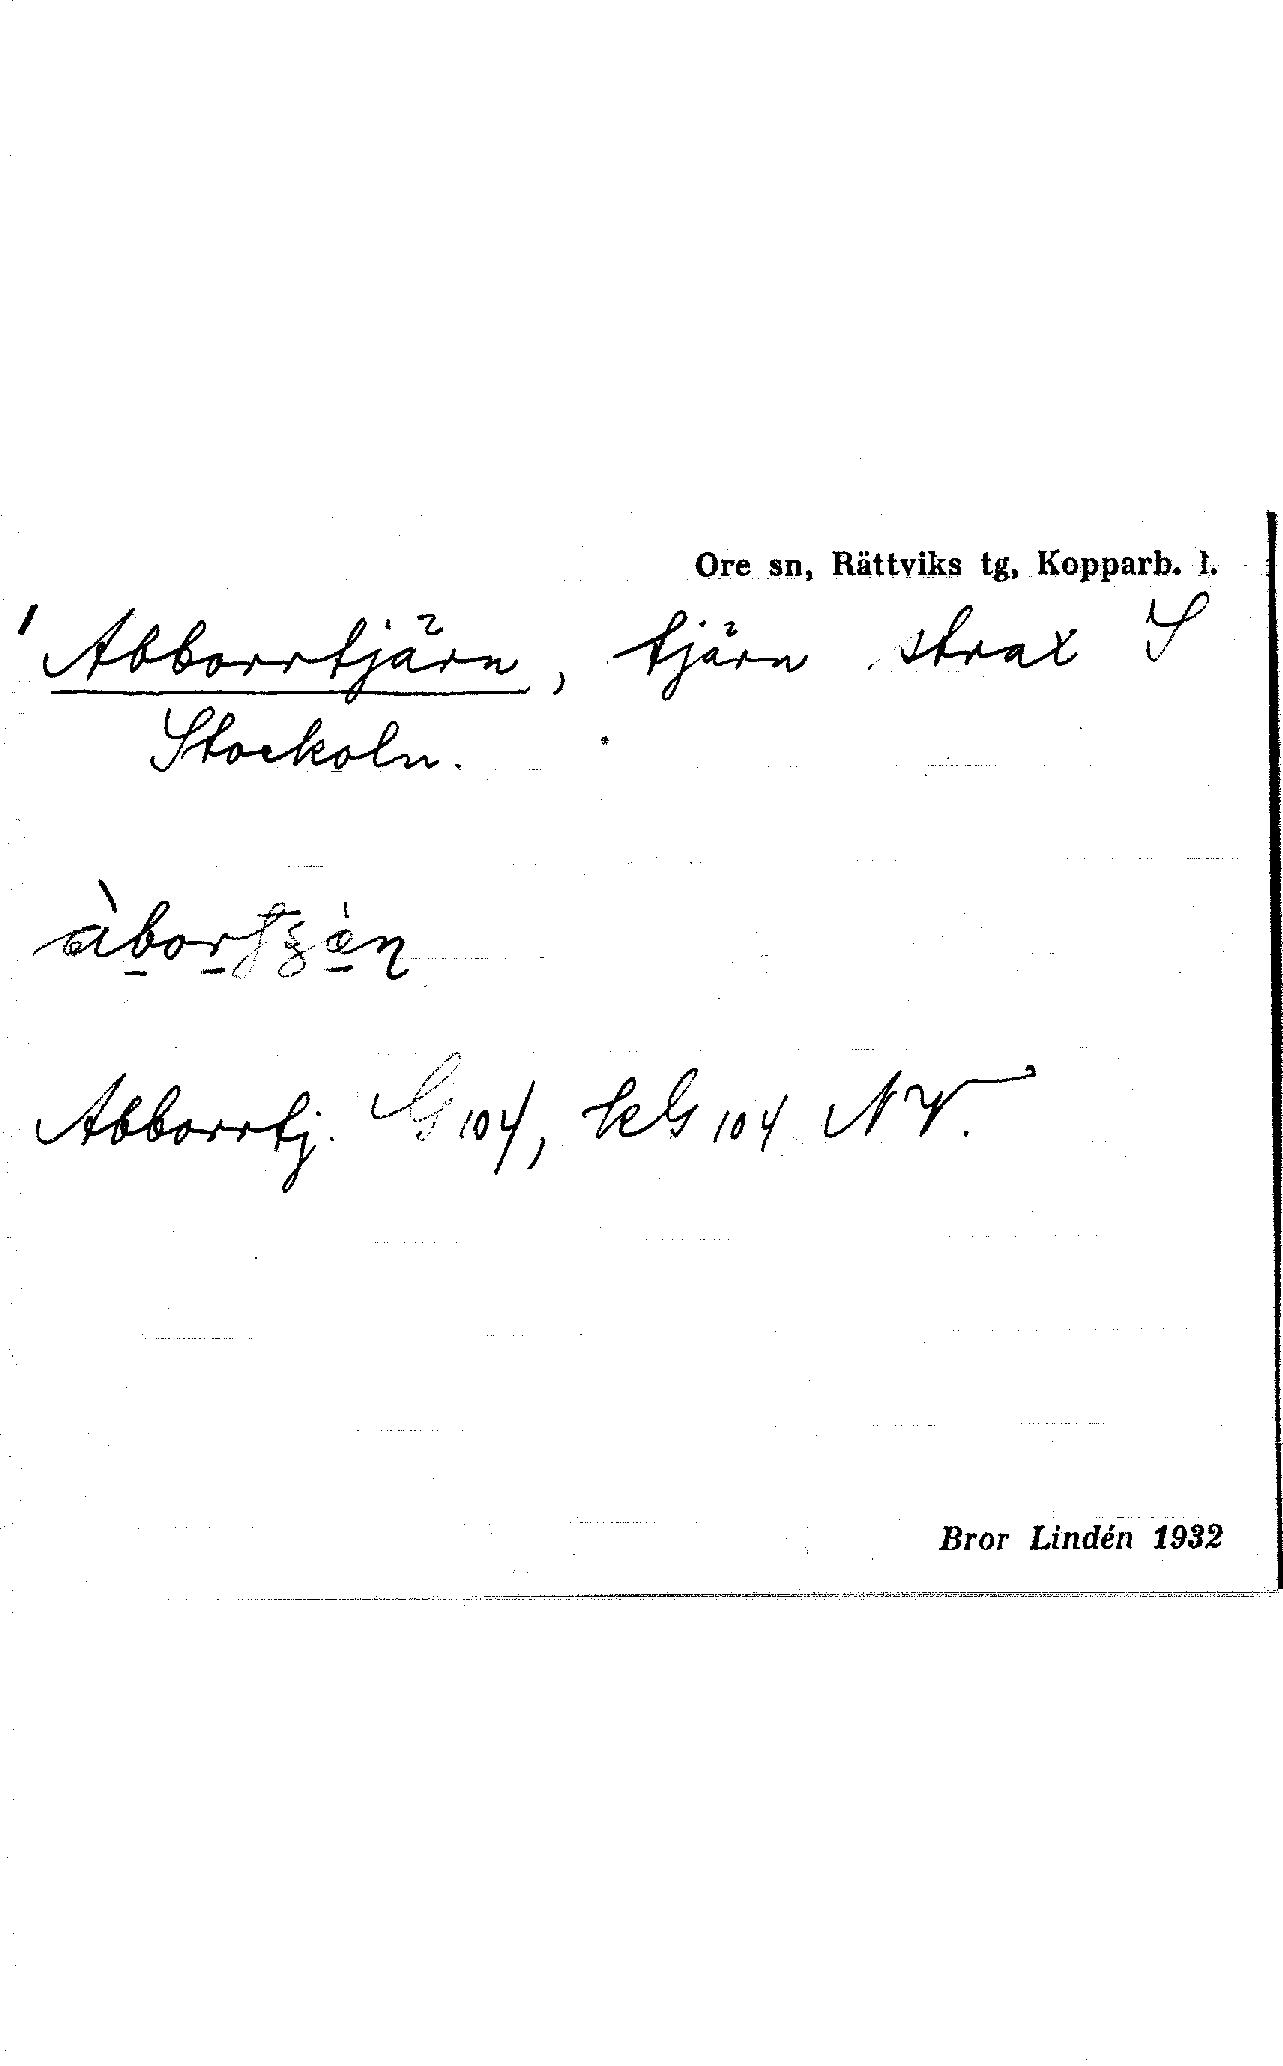 Ore sn, Rättviks tg, Kopparb. l.
Abborrtjärn, tjärn strax S
Stockoln.
Abborrtj. G 104, kG 104 NV.
Bror Lindén 1932